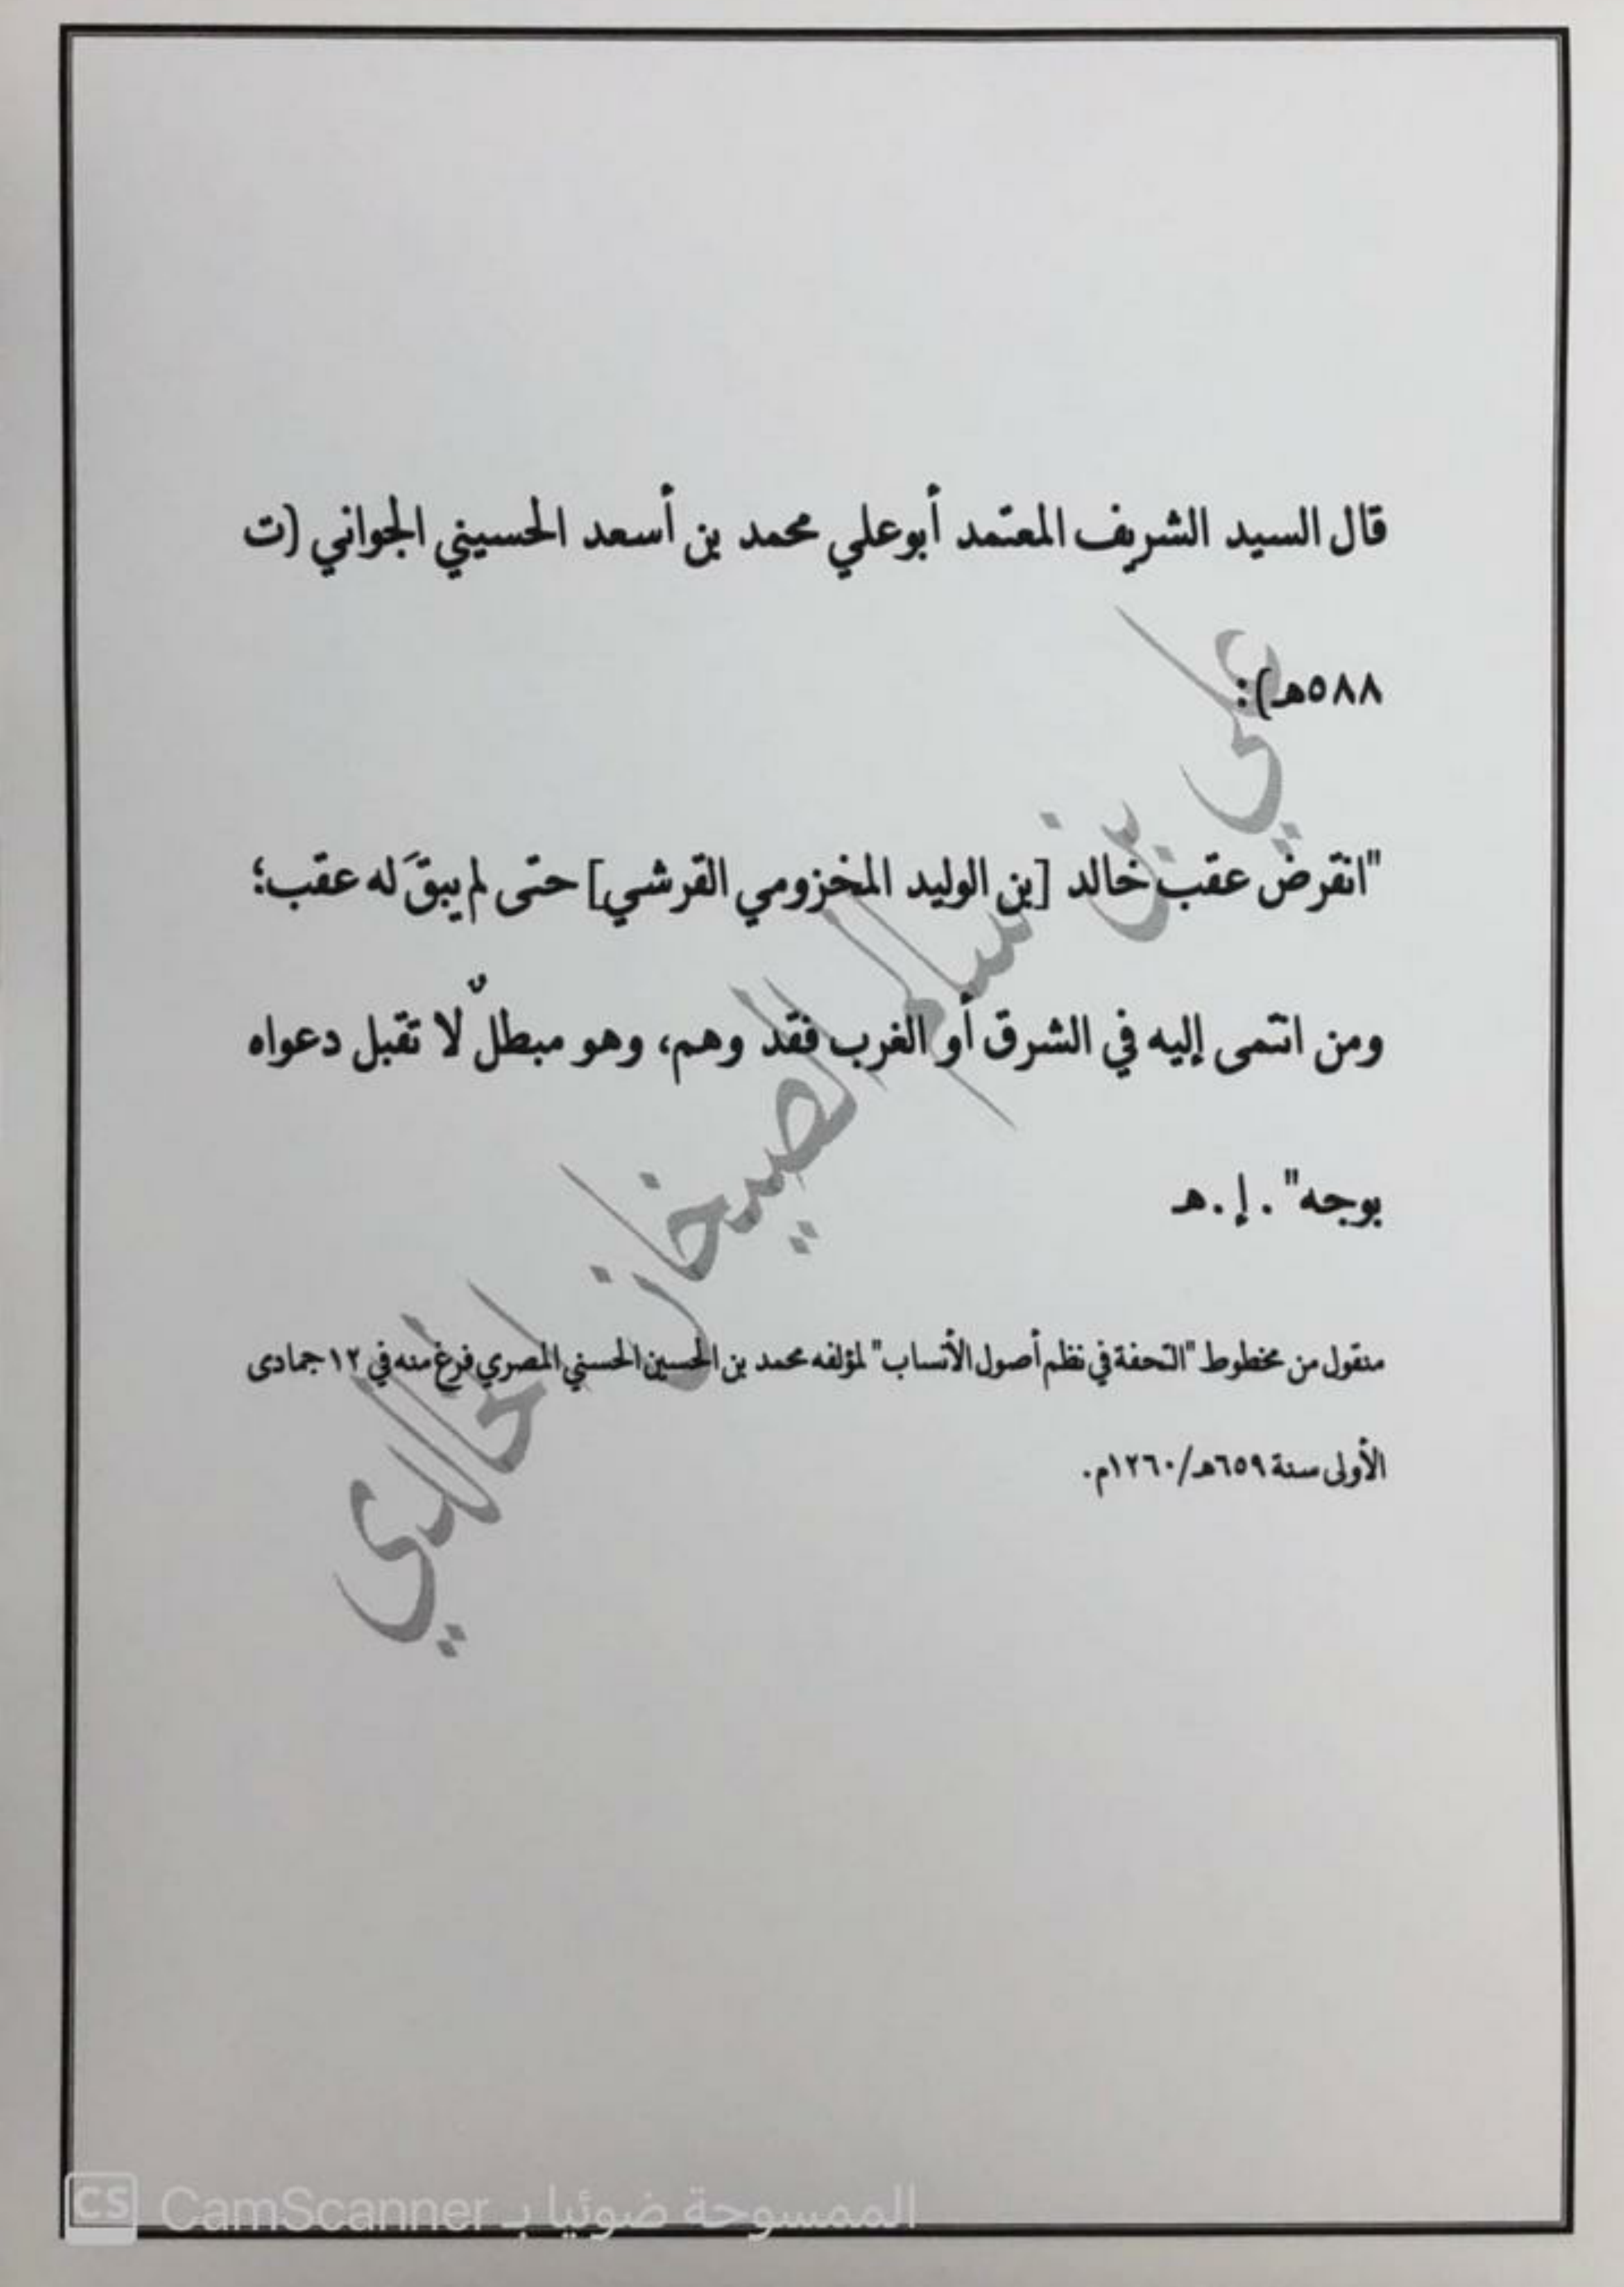 قال السيد الشريف المعتمد أبوعلي محمد بن أسعد الحسيني الجواني (ت
٥٨٨هـ):
"انقرض عقب خالد [بن الوليد المخزومي القرشي] حتى لم يبقَ له عقب؛
ومن انتمى إليه في الشرق أو الغرب فقد وهم، وهو مبطلٌ لا تقبل دعواه
بوجه". إ.هـ
منقول من مخطوط "التحفة في نظم أصول الأنساب" لمؤلفه محمد بن الحسين الحسني المصري فرغ منه في ١٢ جمادى
الأولى سنة ٦٥٩هـ/١٢٦٠م.
علي بن سالم الصيخان الخالدي
CS الممسوحة ضوئيا بـ CamScanner